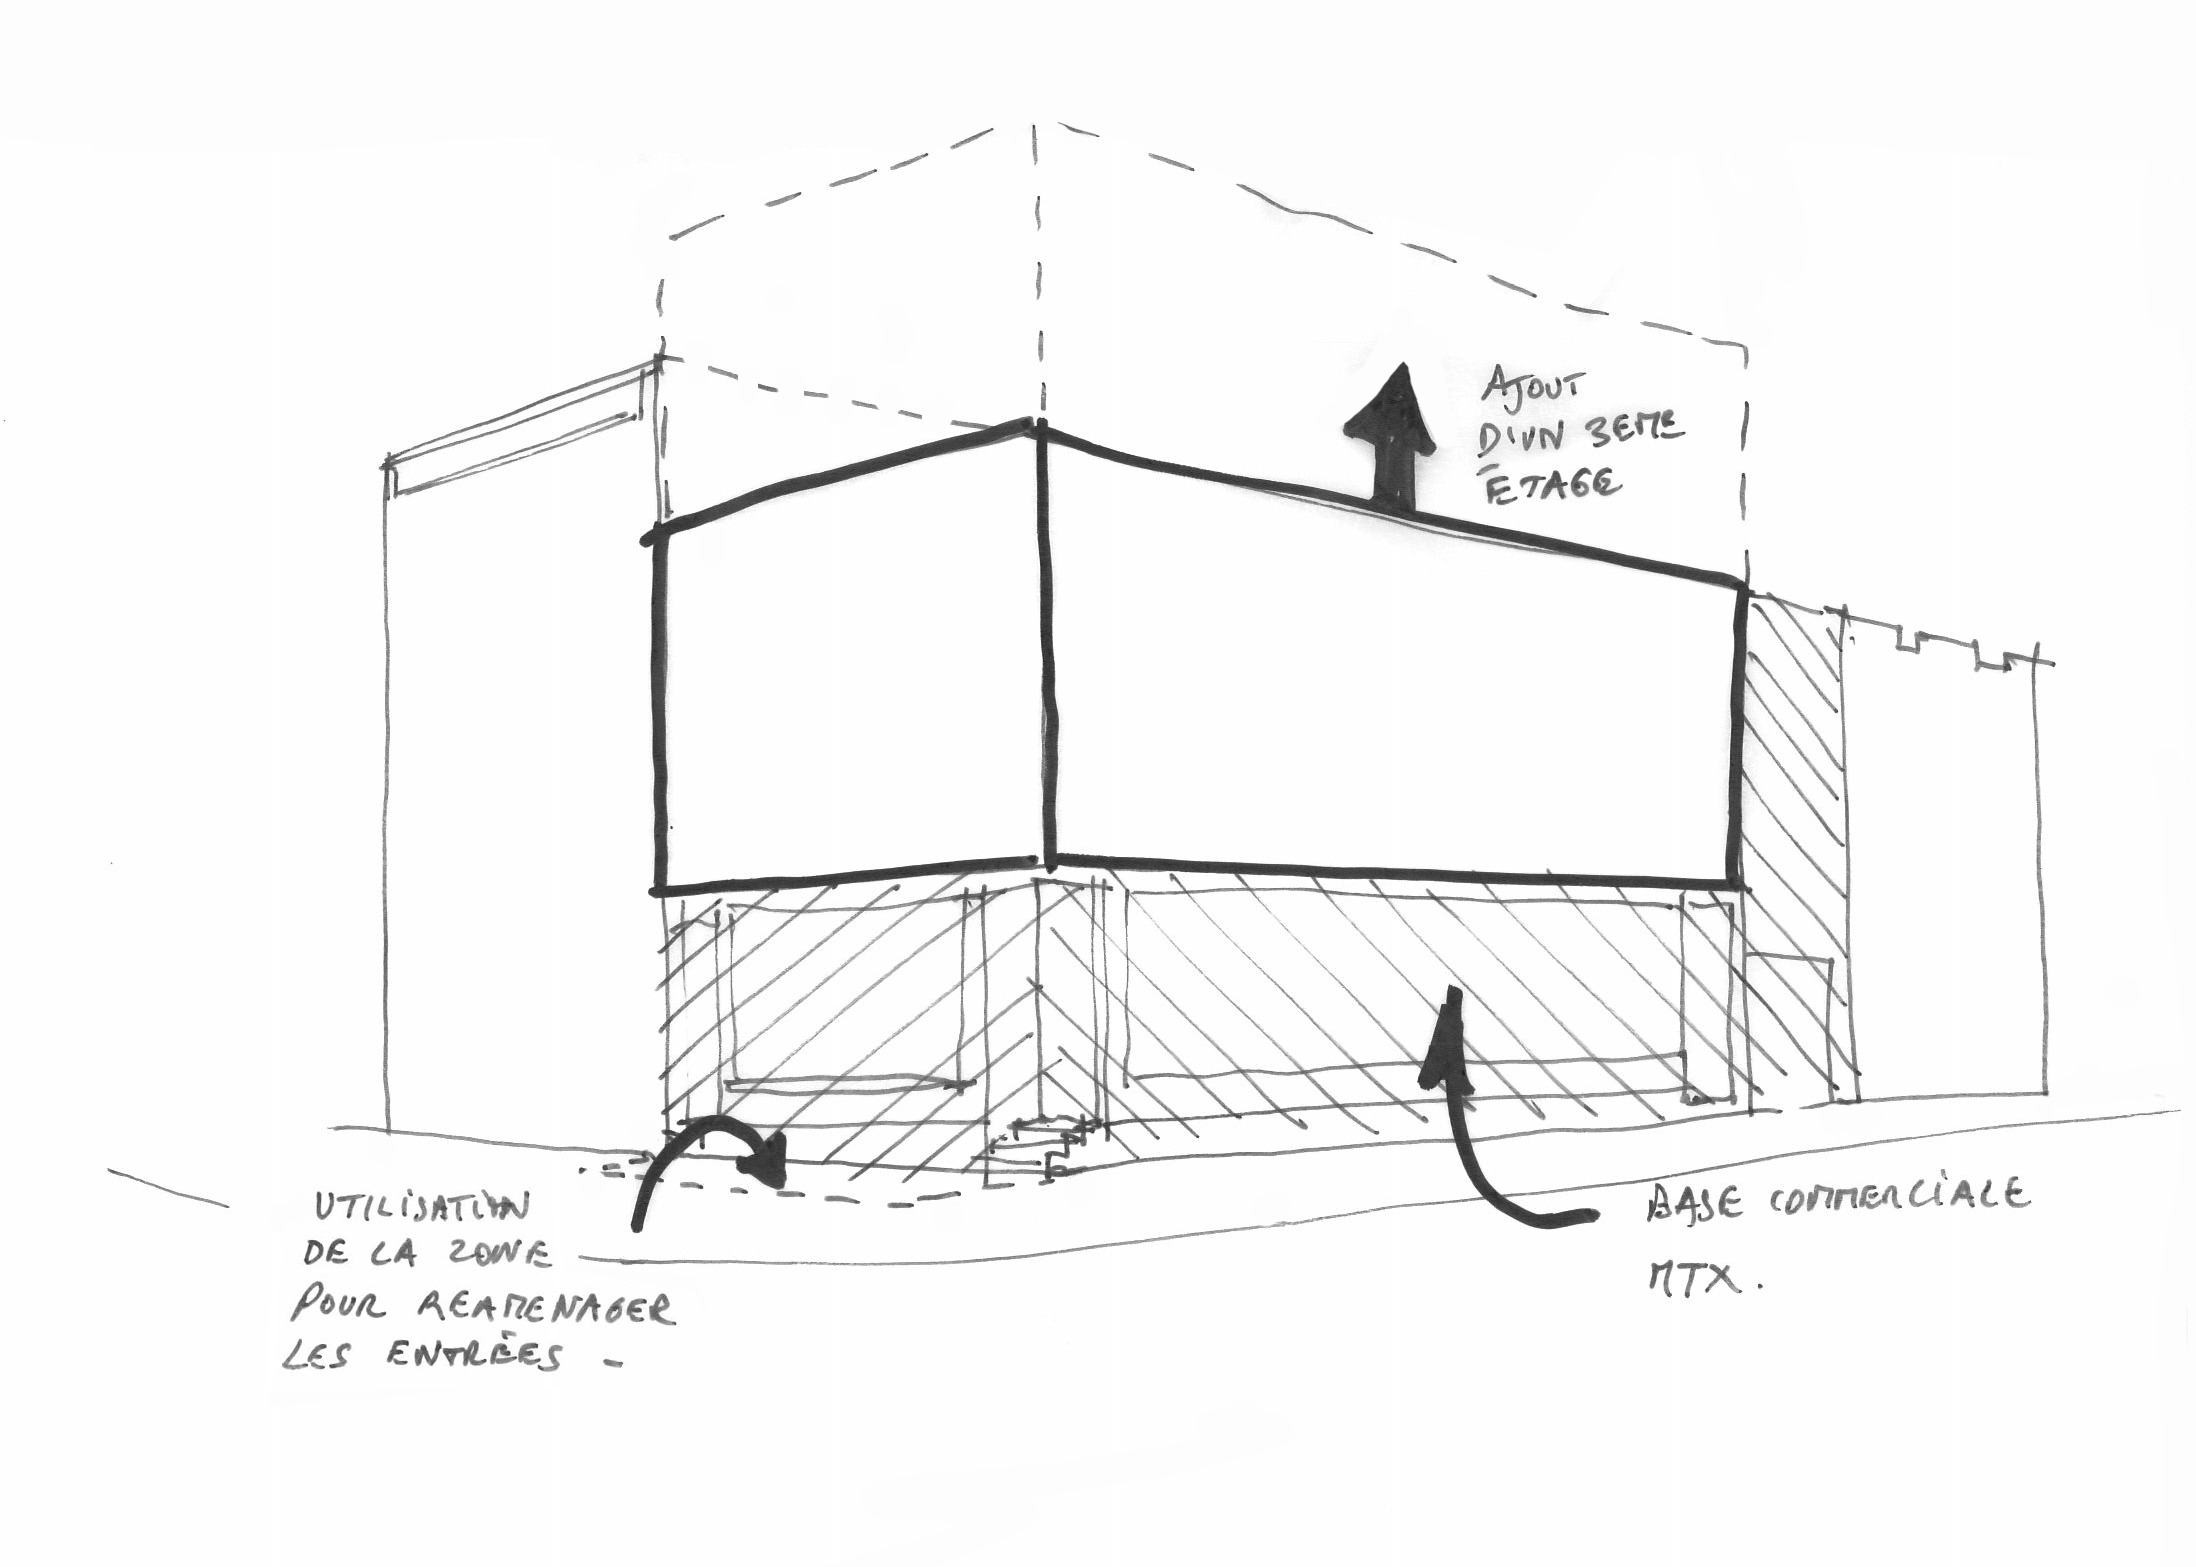 AJOUT
D'UN 3EME
ÉTAGE
UTILISATION
DE LA ZONE
POUR REAMENAGER
LES ENTRÉES -
BASE COMMERCIALE
MTX.